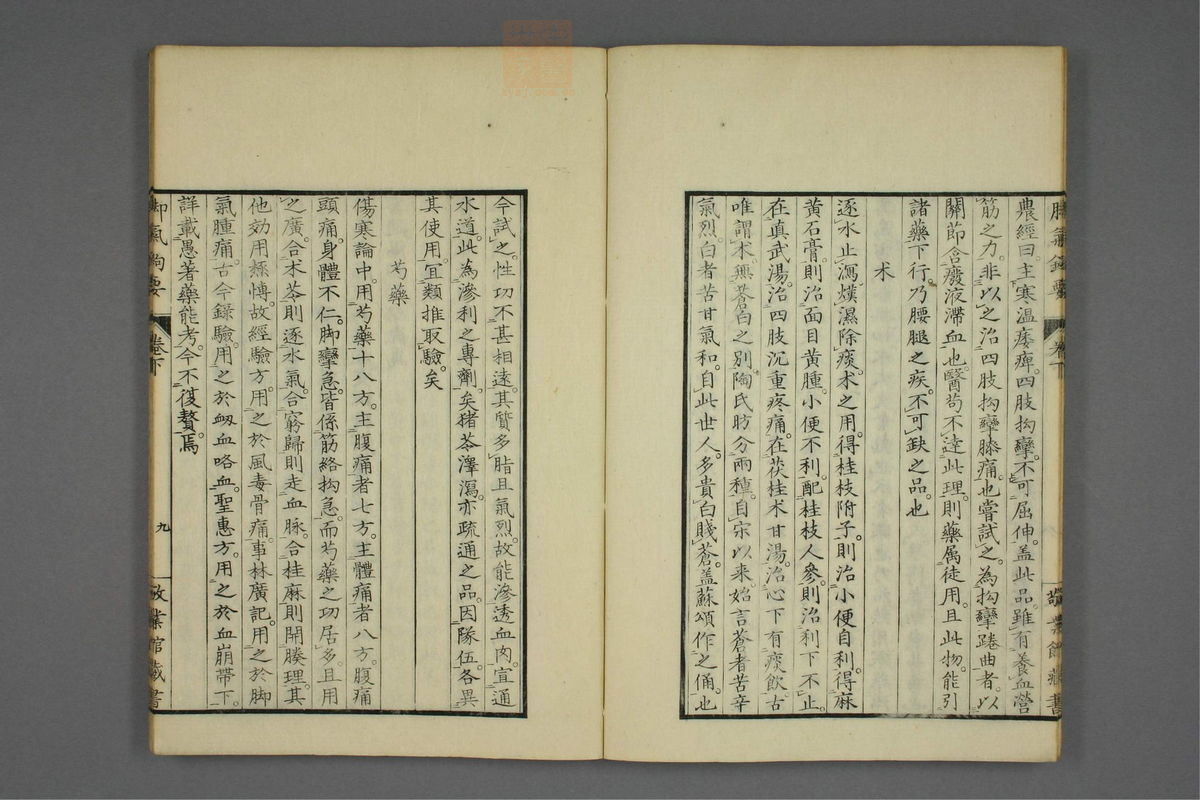 農經曰。主寒温痿痺。四肢拘攣。不可屈伸。蓋此品雖有養血營
筋之力。非以之治四肢拘攣膝痛也。嘗試之。為拘攣踡曲者。以
關節含癈液滯血也。醫苟不達此理。則藥属徒用。且此物能引
諸藥下行。乃腰腿之疾。不可缺之品也
术
逐水止瀉。熯濕除痰。术之用。得桂枝附子。則治小便自利。得麻
黄石膏。則治面目黄腫。小便不利。配桂枝人參。則治利下不止。
在真武湯。治四肢沉重疼痛。在茯桂术甘湯。治心下有痰飲。古
唯謂术。無蒼白之別。陶氏昉分兩種。自宋以来。始言蒼者苦辛
氣烈。白者苦甘氣和。自此世人多貴白賤蒼。蓋蘇頌作之俑也
脚氣鉤要
卷下
敬業館藏書
今試之。性功不甚相遠。其質多脂且氣烈。故能滲透血肉。宣通
水道。此為滲利之專劑矣。猪苓澤瀉。亦疏通之品。因隊伍各異
其使用。宜類推取驗矣
芍藥
傷寒論中。用芍藥十八方。主腹痛者七方。主體痛者八方。腹痛
頭痛。身體不仁。脚攣急。皆係筋絡拘急。而芍藥之功居多。且用
之廣。合术苓則逐水氣。合窮歸則走血脉。合桂麻則開腠理。其
他効用繁愽。故經驗方。用之於風毒骨痛。事林廣記。用之於脚
氣腫痛。古今録驗。用之於衂血咯血。聖惠方。用之於血崩帶下。
詳載愚著藥能考。今不復贅焉
脚氣鉤要
卷下
九
敬業館藏書